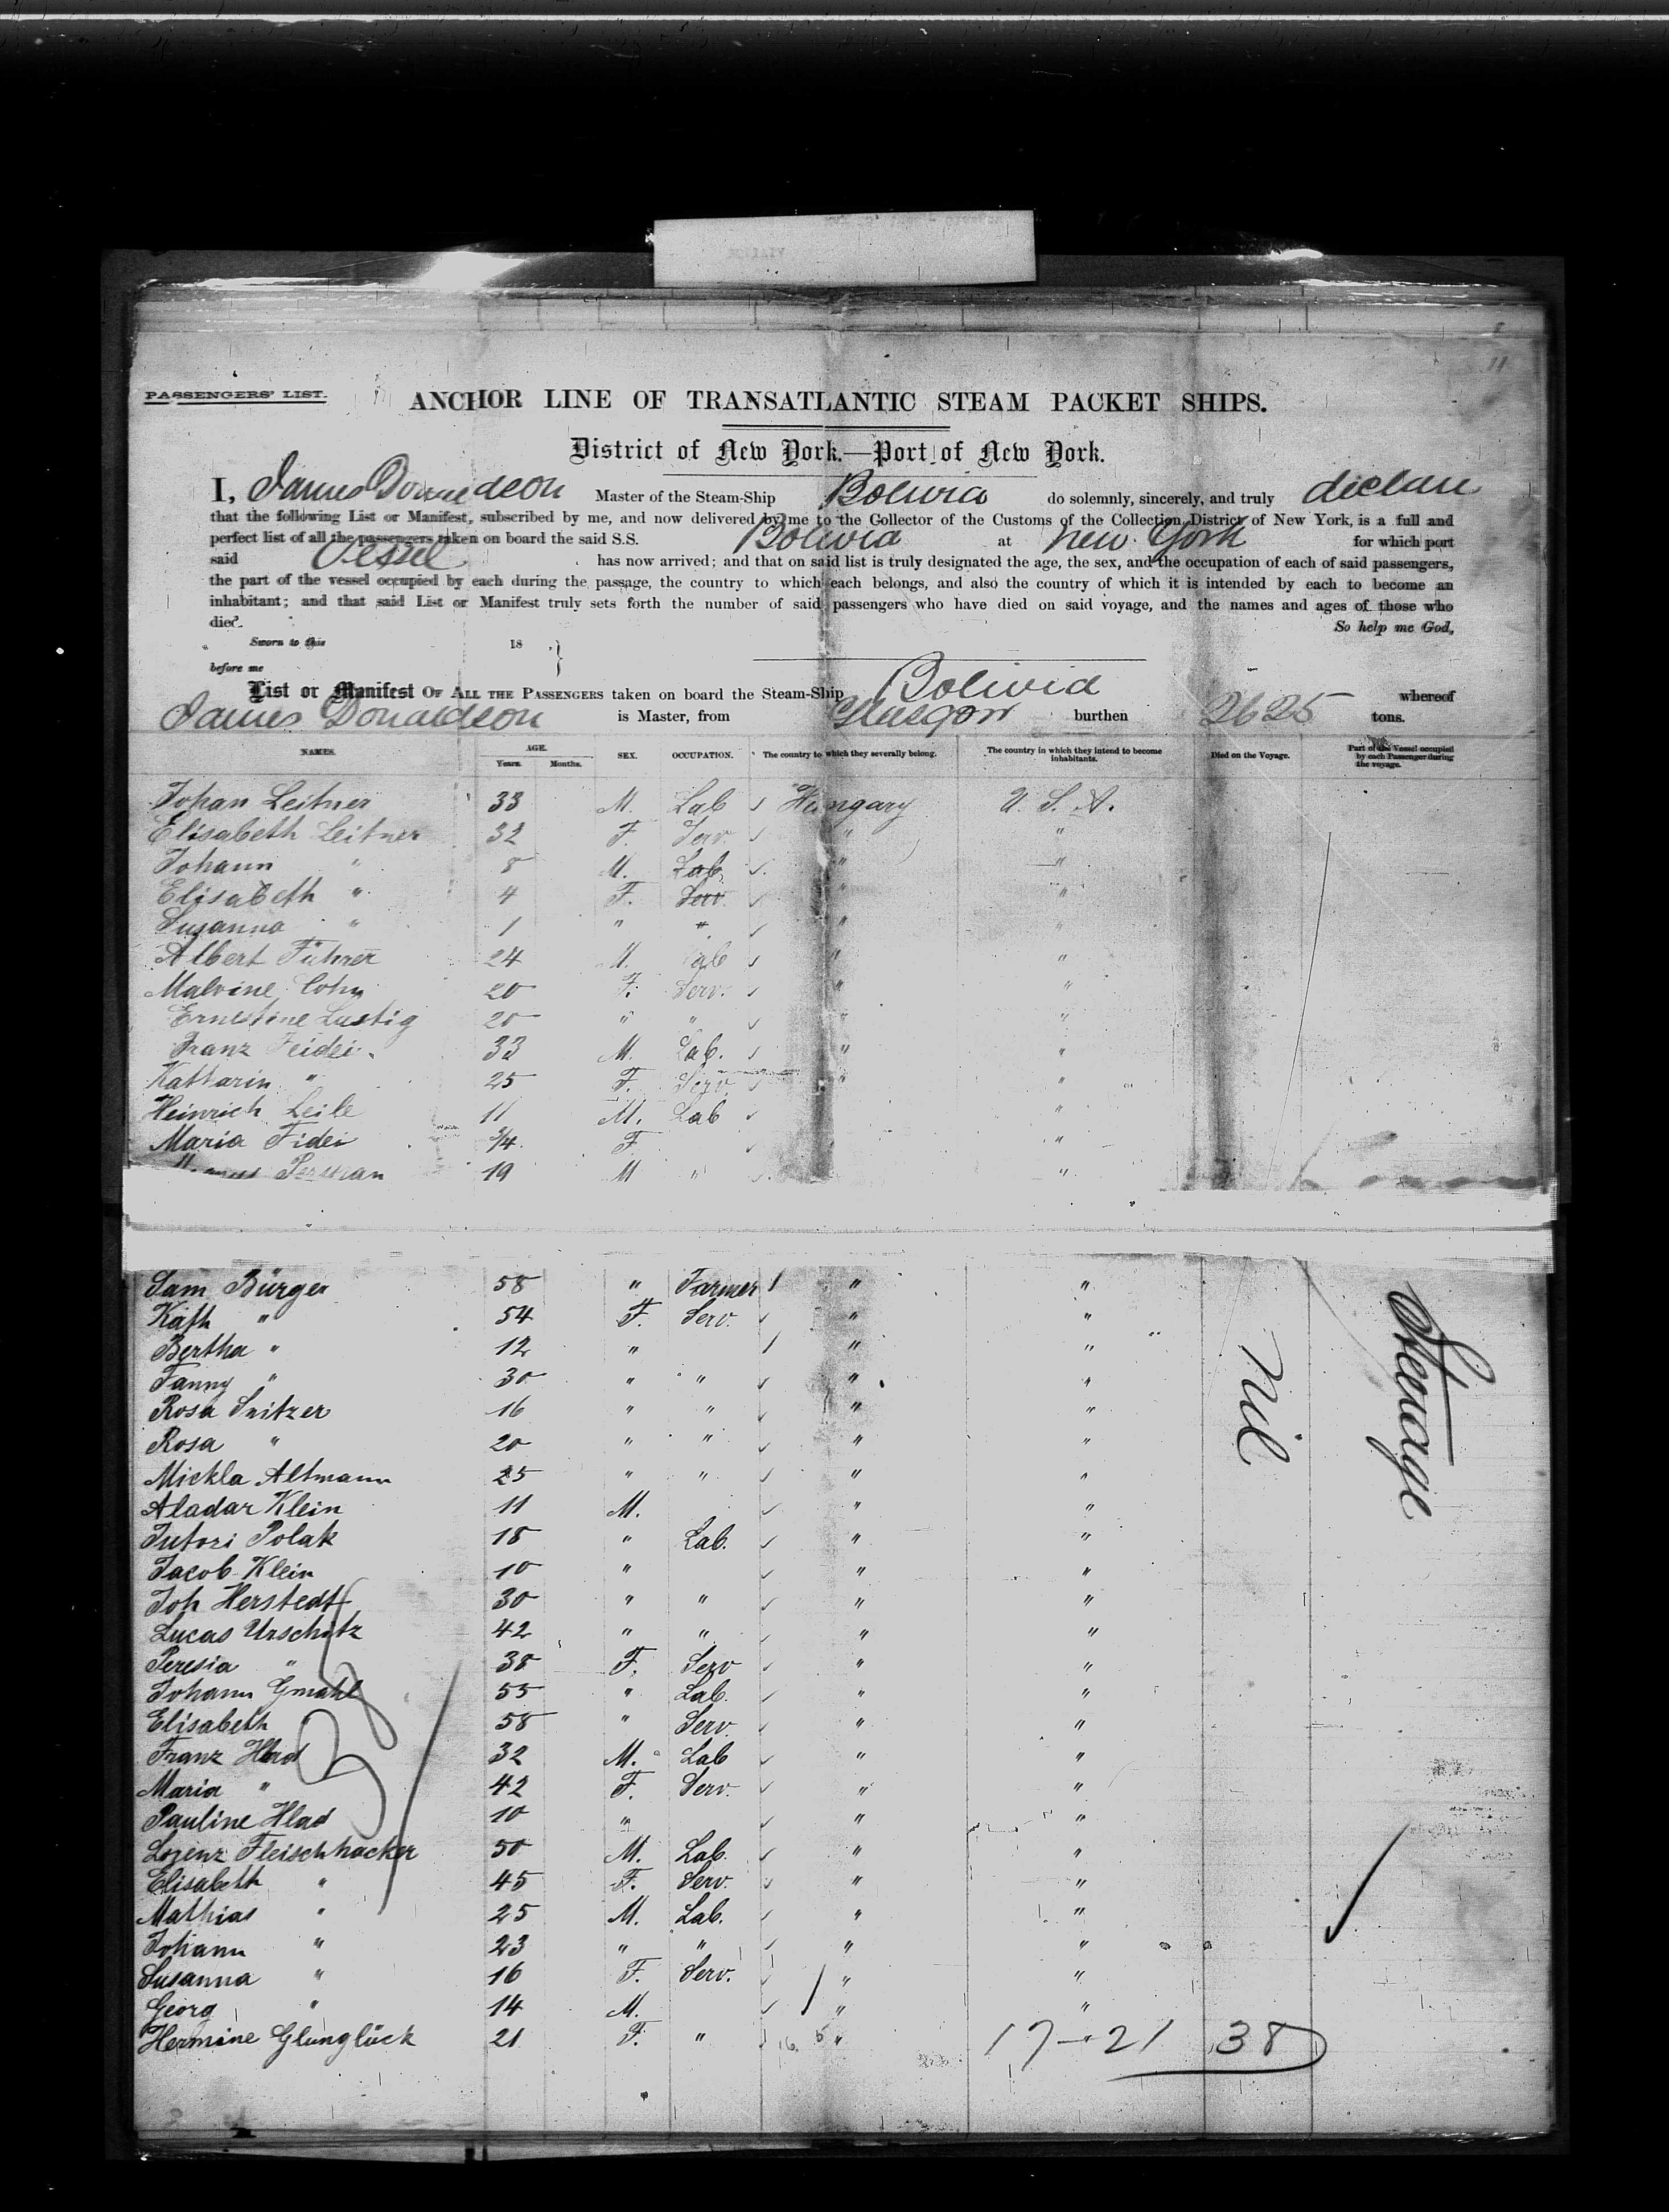 PASSENGERS' LIST.
ANCHOR LINE OF TRANSATLANTIC STEAM PACKET SHIPS.
District of New York.—Port of New York.
I, James Donaldson Master of the Steam-Ship Bolivia do solemnly, sincerely, and truly declare
that the following List or Manifest, subscribed by me, and now delivered by me to the Collector of the Customs of the Collection District of New York, is a full and
perfect list of all the passengers taken on board the said S.S. Bolivia at New York for which port
said Vessel has now arrived; and that on said list is truly designated the age, the sex, and the occupation of each of said passengers,
the part of the vessel occupied by each during the passage, the country to which each belongs, and also the country of which it is intended by each to become an
inhabitant; and that said List or Manifest truly sets forth the number of said passengers who have died on said voyage, and the names and ages of those who
died. So help me God,
Sworn to this 18
before me
List or Manifest OF ALL THE PASSENGERS taken on board the Steam-Ship Bolivia whereof
James Donaldson is Master, from Glasgow burthen 2625 tons.
NAMES. AGE. Years. Months. SEX. OCCUPATION. The country to which they severally belong. The country in which they intend to become inhabitants. Died on the Voyage. Part of the Vessel occupied by each Passenger during the voyage.
Johan Leitner 33 M. Lab Hungary U.S.A.
Elisabeth Leitner 32 F. Serv. " "
Johann " 8 M. Lab " "
Elisabeth " 4 F. Serv. " "
Susanna " 1 " " " "
Albert Führer 24 M. Lab " "
Malvine Cohn 20 F. Serv. " "
Ernestine Lustig 20 " " " "
Franz Feidei 33 M. Lab. " "
Katharin " 25 F. Serv. " "
Heinrich Leile 11 M. Lab "
Maria Fidei 3/4 F "
Perman 19 M " "
Sam Bürger 58 " Farmer " "
Käth " 54 F. Serv. " "
Bertha " 12 " " "
Fanny " 30 " " " "
Rosa Snitzer 16 " " " "
Rosa " 20 " " " "
Mickla Altmann 25 " " " "
Aladar Klein 11 M. " "
Jutori Polak 18 " Lab. " "
Jacob Klein 10 " " "
Joh Herstedt 30 " " " "
Lucas Urschitz 42 " " " "
Teresia " 38 F. Serv " "
Johann Gmahl 55 " Lab. " "
Elisabeth 58 " Serv. " "
Franz Hlad 32 M. Lab " "
Maria " 42 F. Serv. " "
Pauline Hlad 10 " " "
Lorenz Fleischhacker 50 M. Lab. " "
Elisabeth " 45 F. Serv. " "
Mathias " 25 M. Lab. " "
Johann " 23 " " " "
Susanna " 16 F. Serv. " "
Georg " 14 M. " "
Hermine Glunglück 21 F. " "
17-21 38
nil
Steerage
11